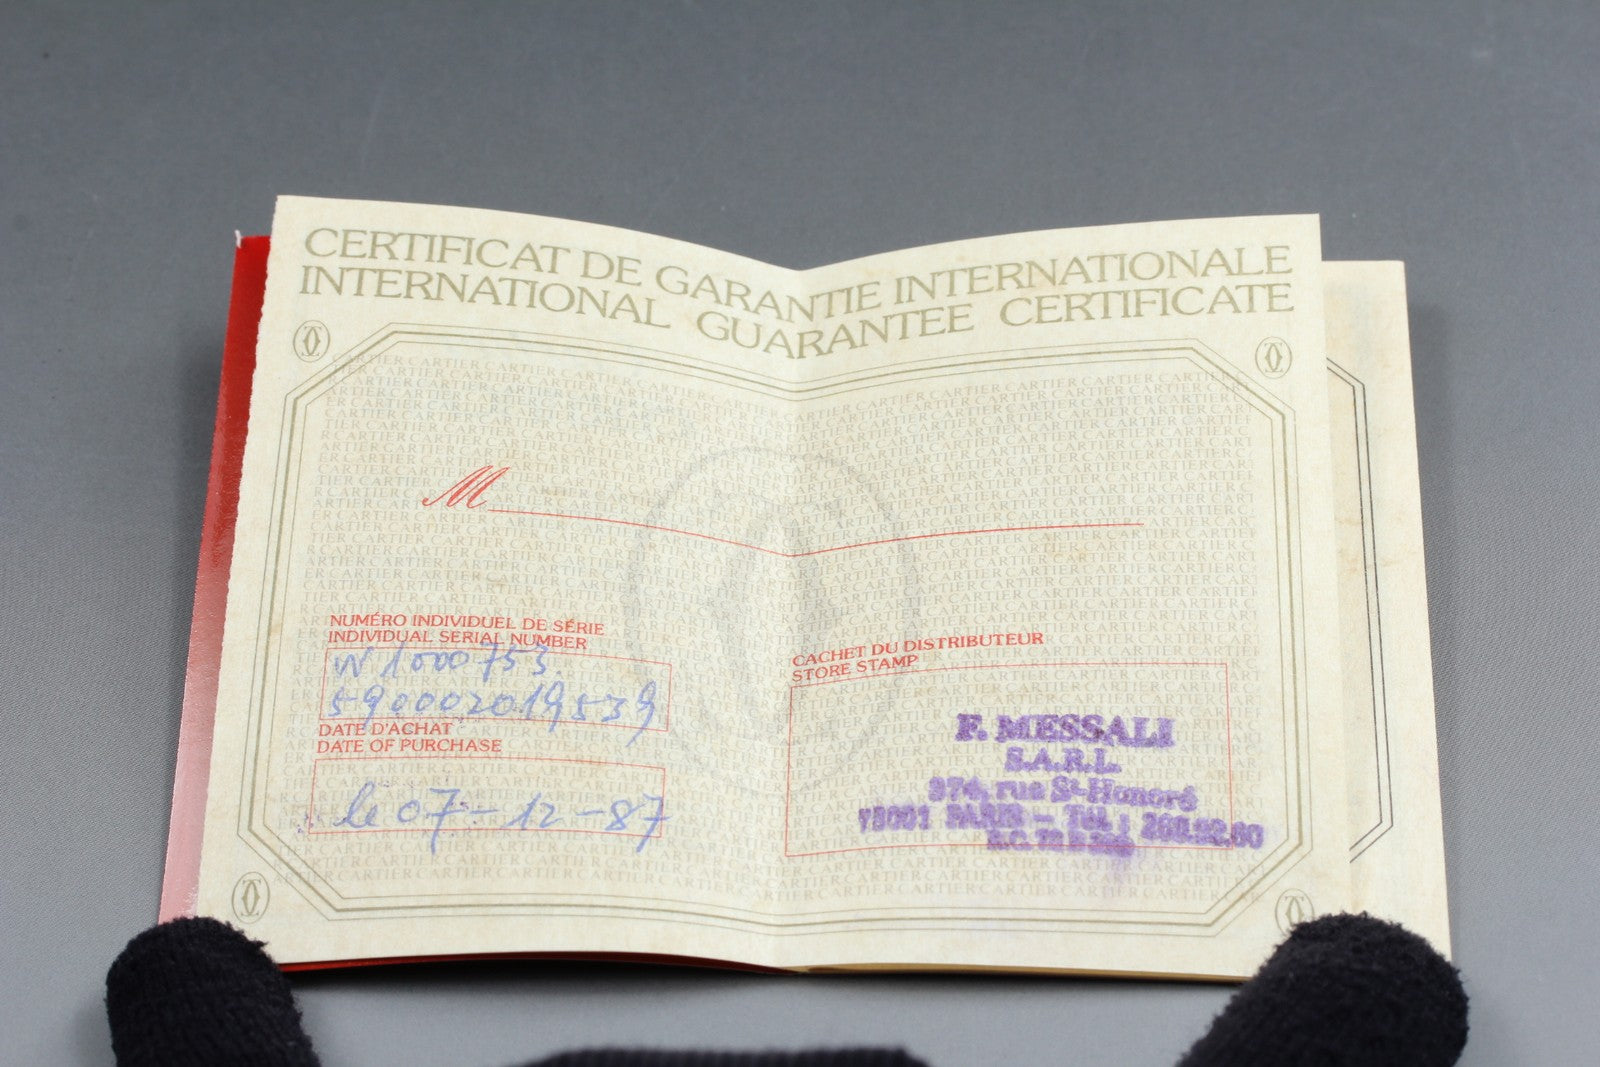 CERTIFICAT DE GARANTIE INTERNATIONALE
INTERNATIONAL GUARANTEE CERTIFICATE
M
NUMÉRO INDIVIDUEL DE SÉRIE
INDIVIDUAL SERIAL NUMBER
W1000753
590002019539
DATE D'ACHAT
DATE OF PURCHASE
le 07-12-87
CACHET DU DISTRIBUTEUR
STORE STAMP
F. MESSALI
S.A.R.L.
374, rue St-Honoré
75001 PARIS - Tél.
R.C.